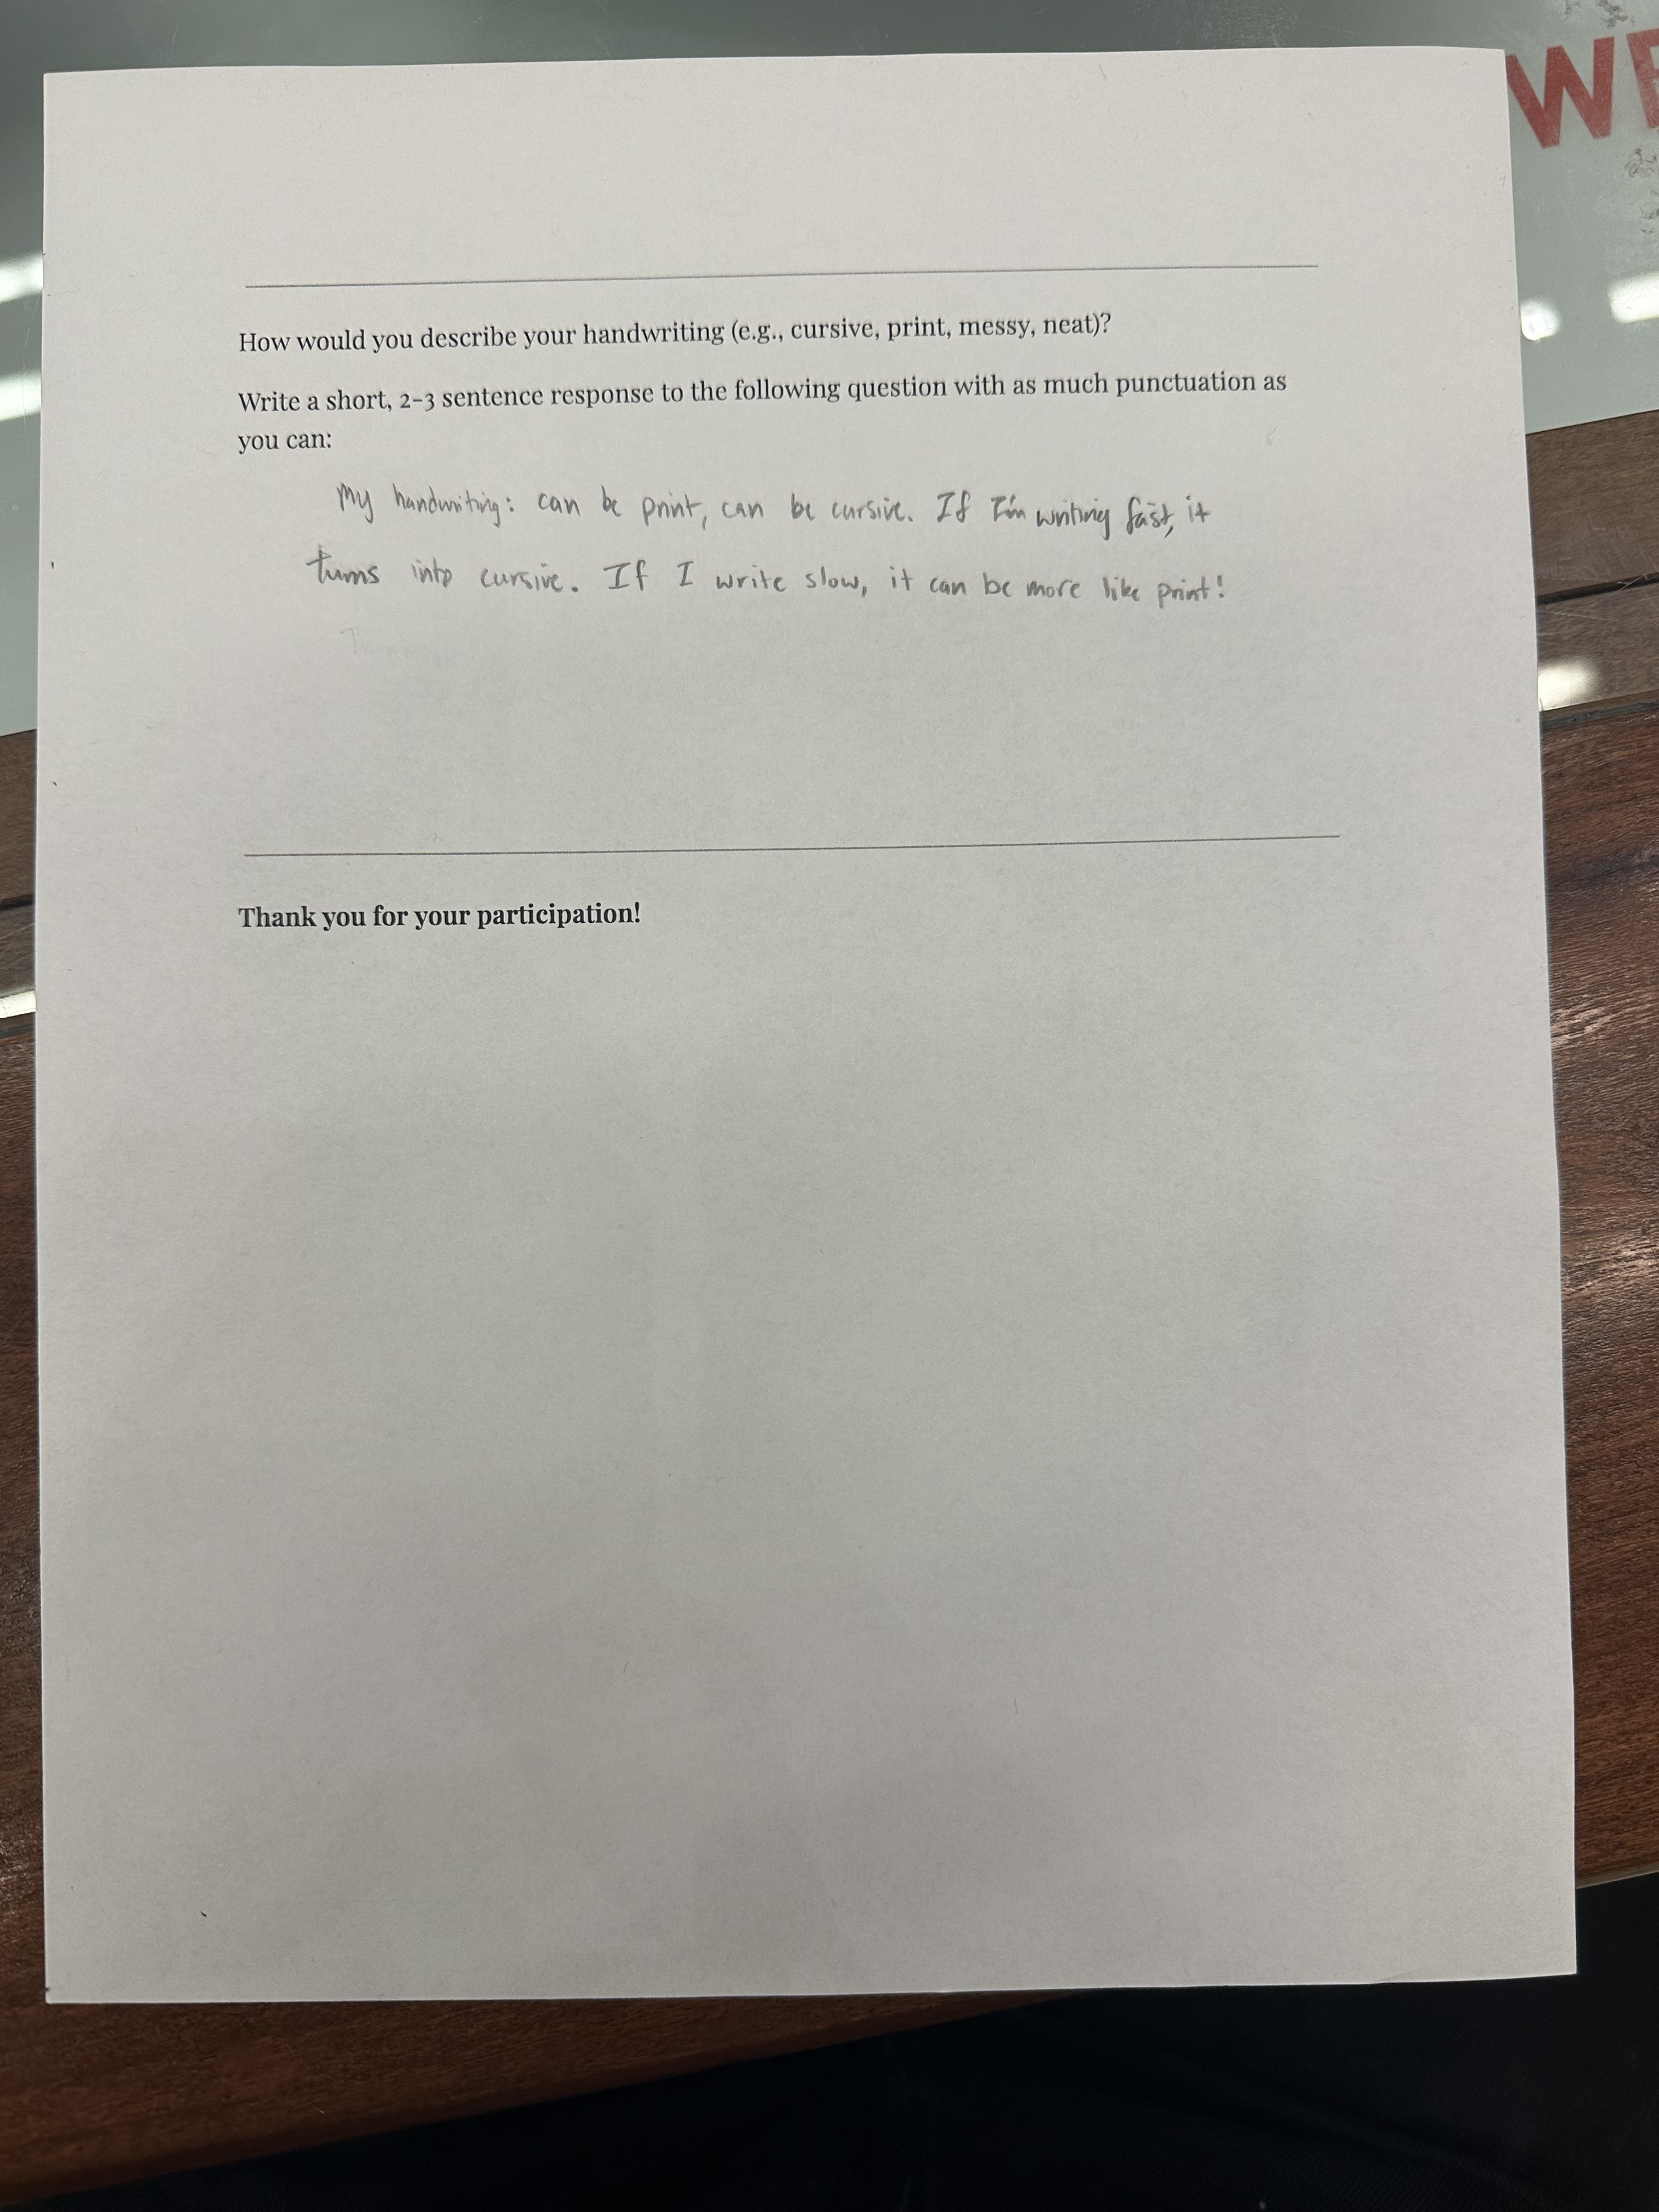 WE
How would you describe your handwriting (e.g., cursive, print, messy, neat)?
Write a short, 2-3 sentence response to the following question with as much punctuation as
you can:
My handwriting: can be print, can be cursive. If I'm writing fast, it
turns into cursive. If I write slow, it can be more like print!
Thank you for your participation!